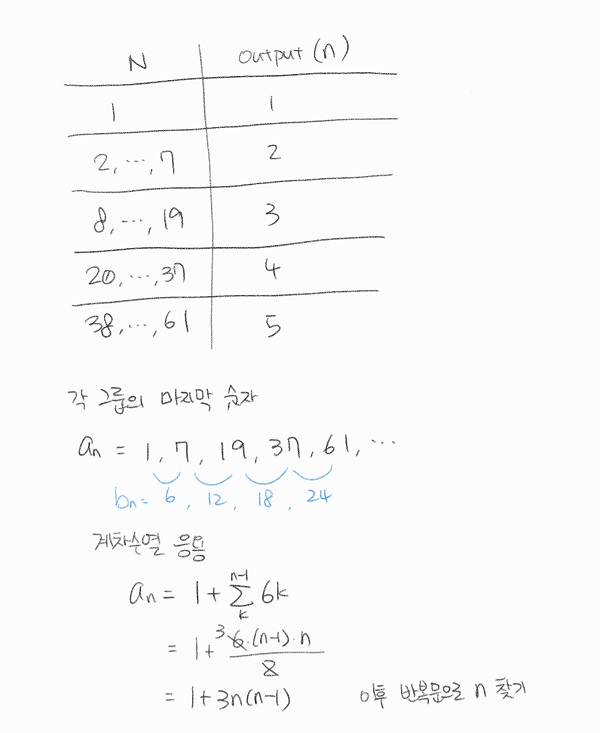 N output (n)
1 1
2, ..., 7 2
8, ..., 19 3
20, ..., 37 4
38, ..., 61 5
각 그룹의 마지막 숫자
aₙ = 1, 7, 19, 37, 61, ...
bₙ = 6, 12, 18, 24
계차수열 응용
n-1
aₙ = 1 + Σ 6k
k
= 1 + ³6·(n-1)·n / 2
= 1 + 3n(n-1) 이후 반복문으로 n 찾기